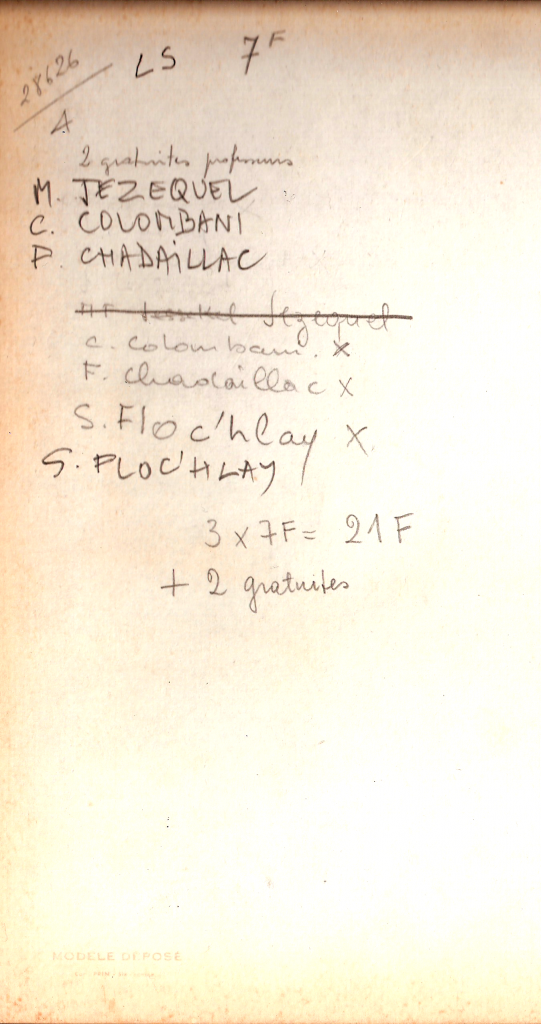 28626
LS 7F
A
2 gratuites professeurs
M. JEZEQUEL
C. COLOMBANI
F. CHADAILLAC
Jezequel
C. Colombani. x
F. Chadaillac x
S. Floc'hlay x
S. FLOC'HLAY
3 x 7F = 21F
+ 2 gratuites
MODELE DEPOSE